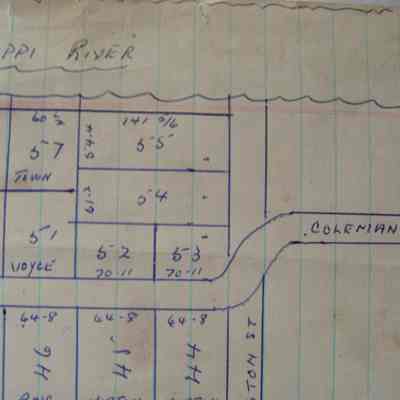 PPI RIVER
141 9/6
57
55
TOWN
54
51
52
53
VOYLE
70-11
70-11
COLEMAN
64-8
64-8
64-8
44
TON ST